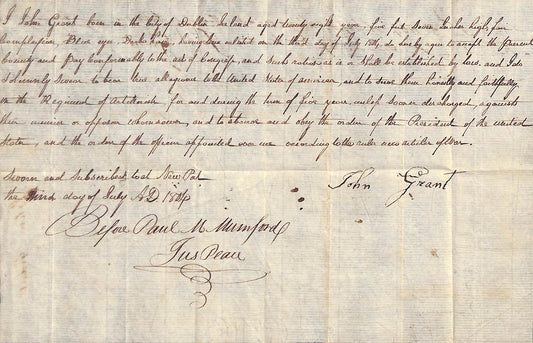 I John Grant born in the City of Dublin Ireland aged twenty eight years five feet Seven Inches high, fair
Complexion Blue eyes Dark hair, having been enlisted on the third day of July 1804, do hereby agree to accept the present
bounty and Pay Conformably to the act of Congress, and Such rations as is or Shall be established by law. and I do
Solemnly Swear to bear true allegiance to the United States of america, and to serve them honestly and faithfully
in the Regiment of Artillerists for and during the term of five years, unless Sooner discharged, against
their enemies or opposers whomsoever, and to observe and obey the orders of the President of the united
States, and the orders of the officers appointed over me according to the rules and articles of War.
Sworn and Subscribed to at New Port
the third day of July AD 1804
John Grant
Before Paul M. Mumford
Jus Peace